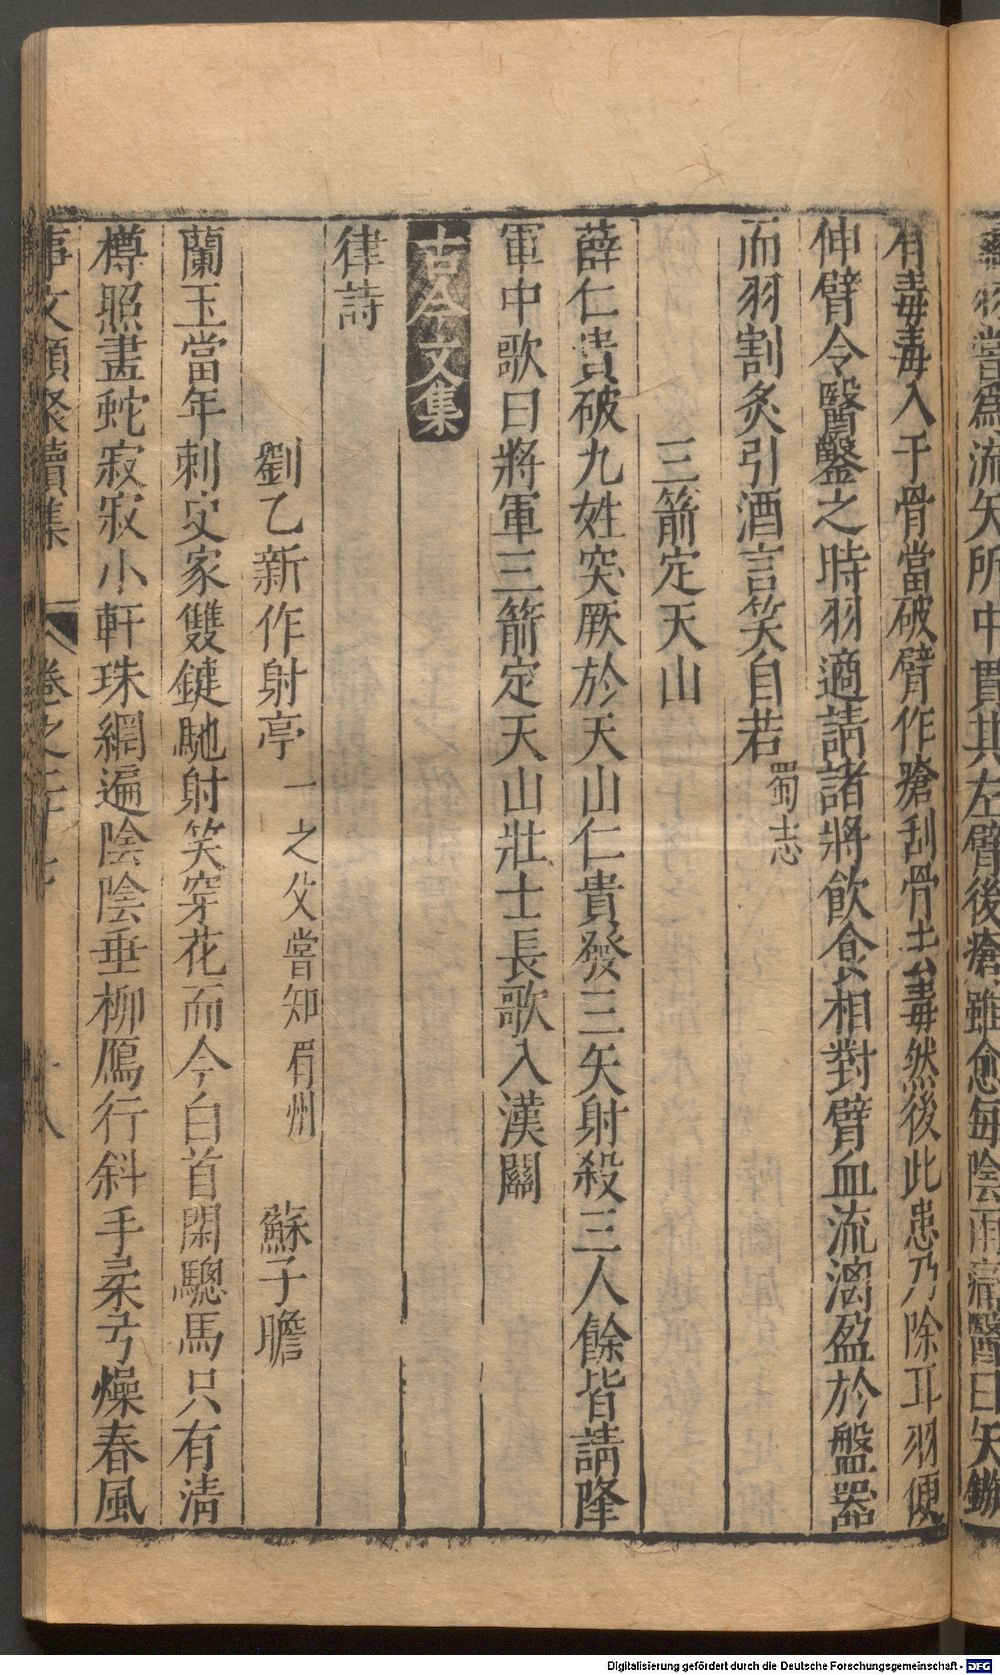 羽嘗爲流矢所中貫其左臂後瘡雖愈每陰雨痛醫曰矢鏃
有毒毒入于骨當破臂作瘡刮骨去毒然後此患乃除耳羽便
伸臂令醫鑿之時羽適請諸將飲食相對臂血流漓盈於盤器
而羽割炙引酒言笑自若蜀志
三箭定天山
薛仁貴破九姓突厥於天山仁貴發三矢射殺三人餘皆請降
軍中歌曰將軍三箭定天山壯士長歌入漢關
古今文集
律詩
劉乙新作射亭 一之父嘗知眉州 蘇子瞻
蘭玉當年刺史家雙鍵馳射笑穿花而今白首閑驄馬只有清
樽照畫蛇寂寂小軒珠網遍陰陰垂柳鴈行斜手柔弓燥春風
事文類聚續集 卷之二十七 十八
Digitalisierung gefördert durch die Deutsche Forschungsgemeinschaft - DFG